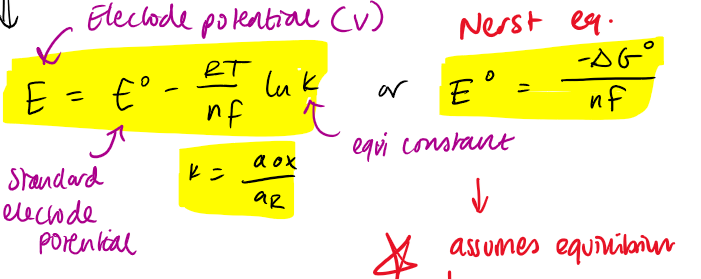 Elecłode potential (V)
Nerst eq.
E = E° - RT/nF ln k or E° = -ΔG°/nF
equi constant
Standard
elecłode
potential
k = aox/aR
assumes equilibrium